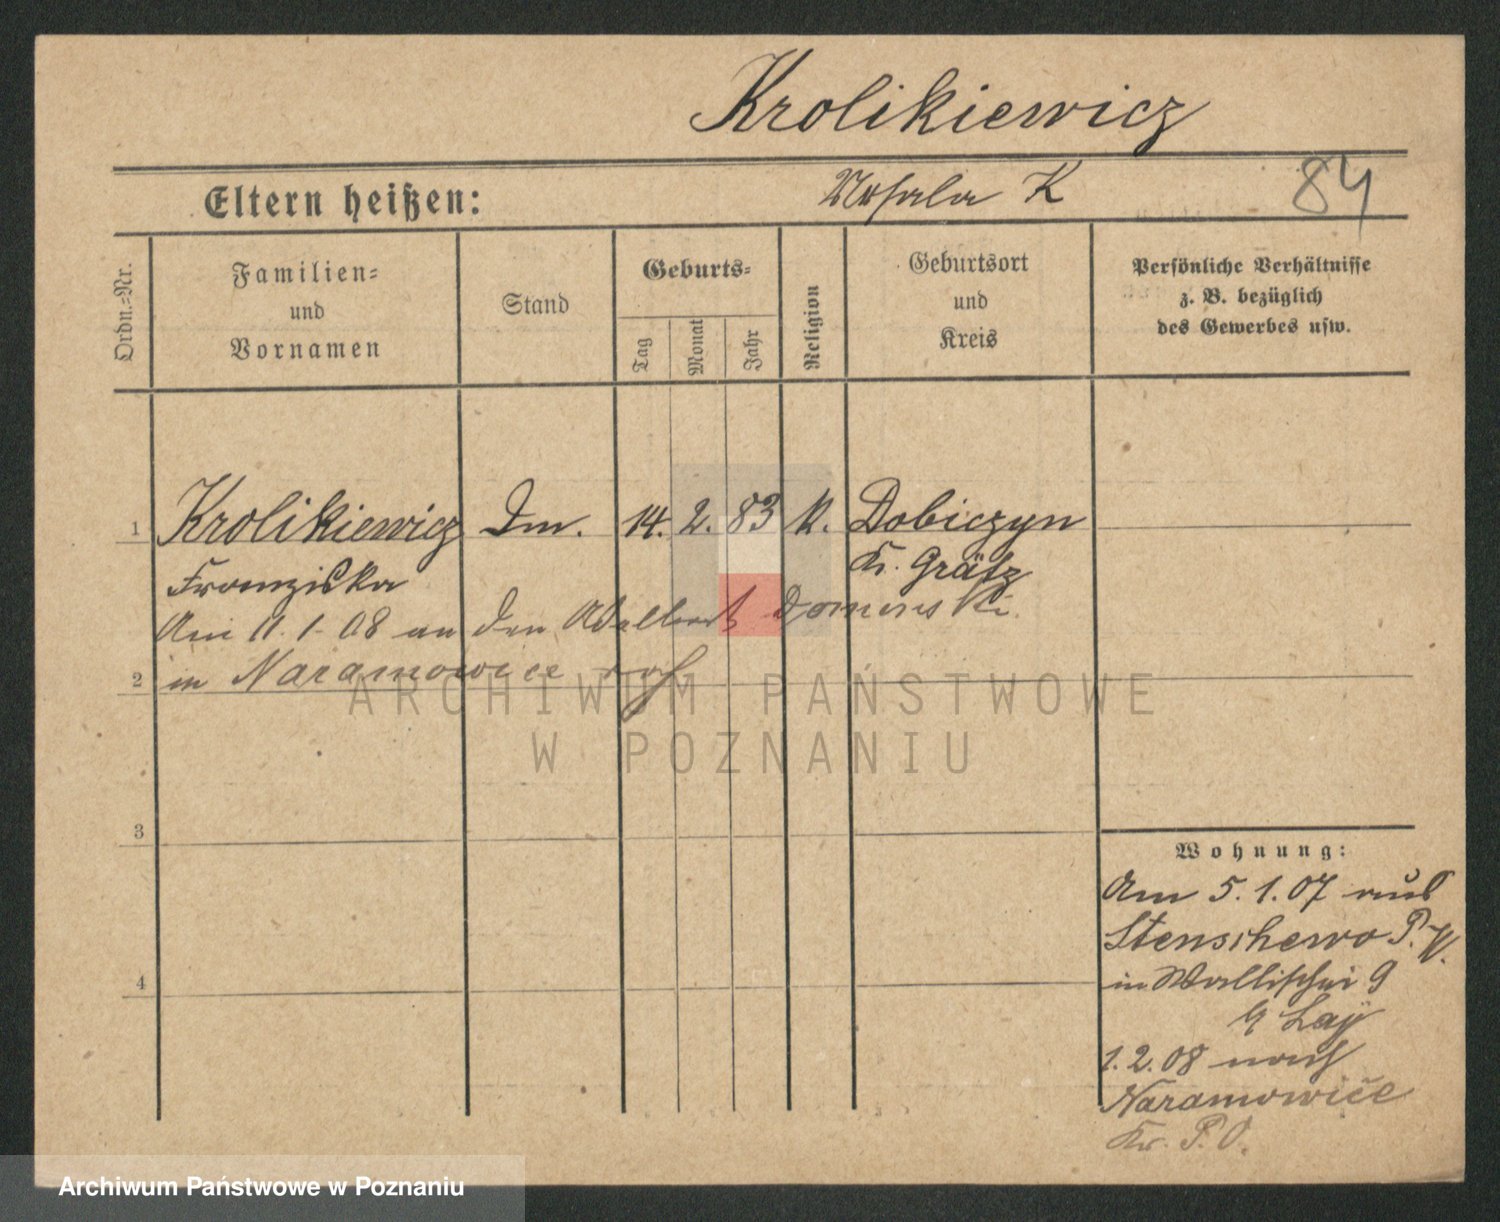 Krolikiewicz
Eltern heißen: K 84
Ordn.=Nr.
Familien=
und
Vornamen
Stand
Geburts=
Tag
Monat
Jahr
Religion
Geburtsort
und
Kreis
Persönliche Verhältnisse
z. B. bezüglich
des Gewerbes usw.
1 Krolikiewicz Dm. 14. 2. 83 k. Dobiczyn
Franziska Kr. Grätz
Am 11.1.08 an den Adalbert Dominski
2 in Naramowice
ARCHIWUM PAŃSTWOWE
W POZNANIU
3
4
Wohnung:
Am 5.1.07 aus
Stenschewo P. W.
in Wallischei 9
1.2.08 nach
Naramowice
Kr. P. O.
Archiwum Państwowe w Poznaniu